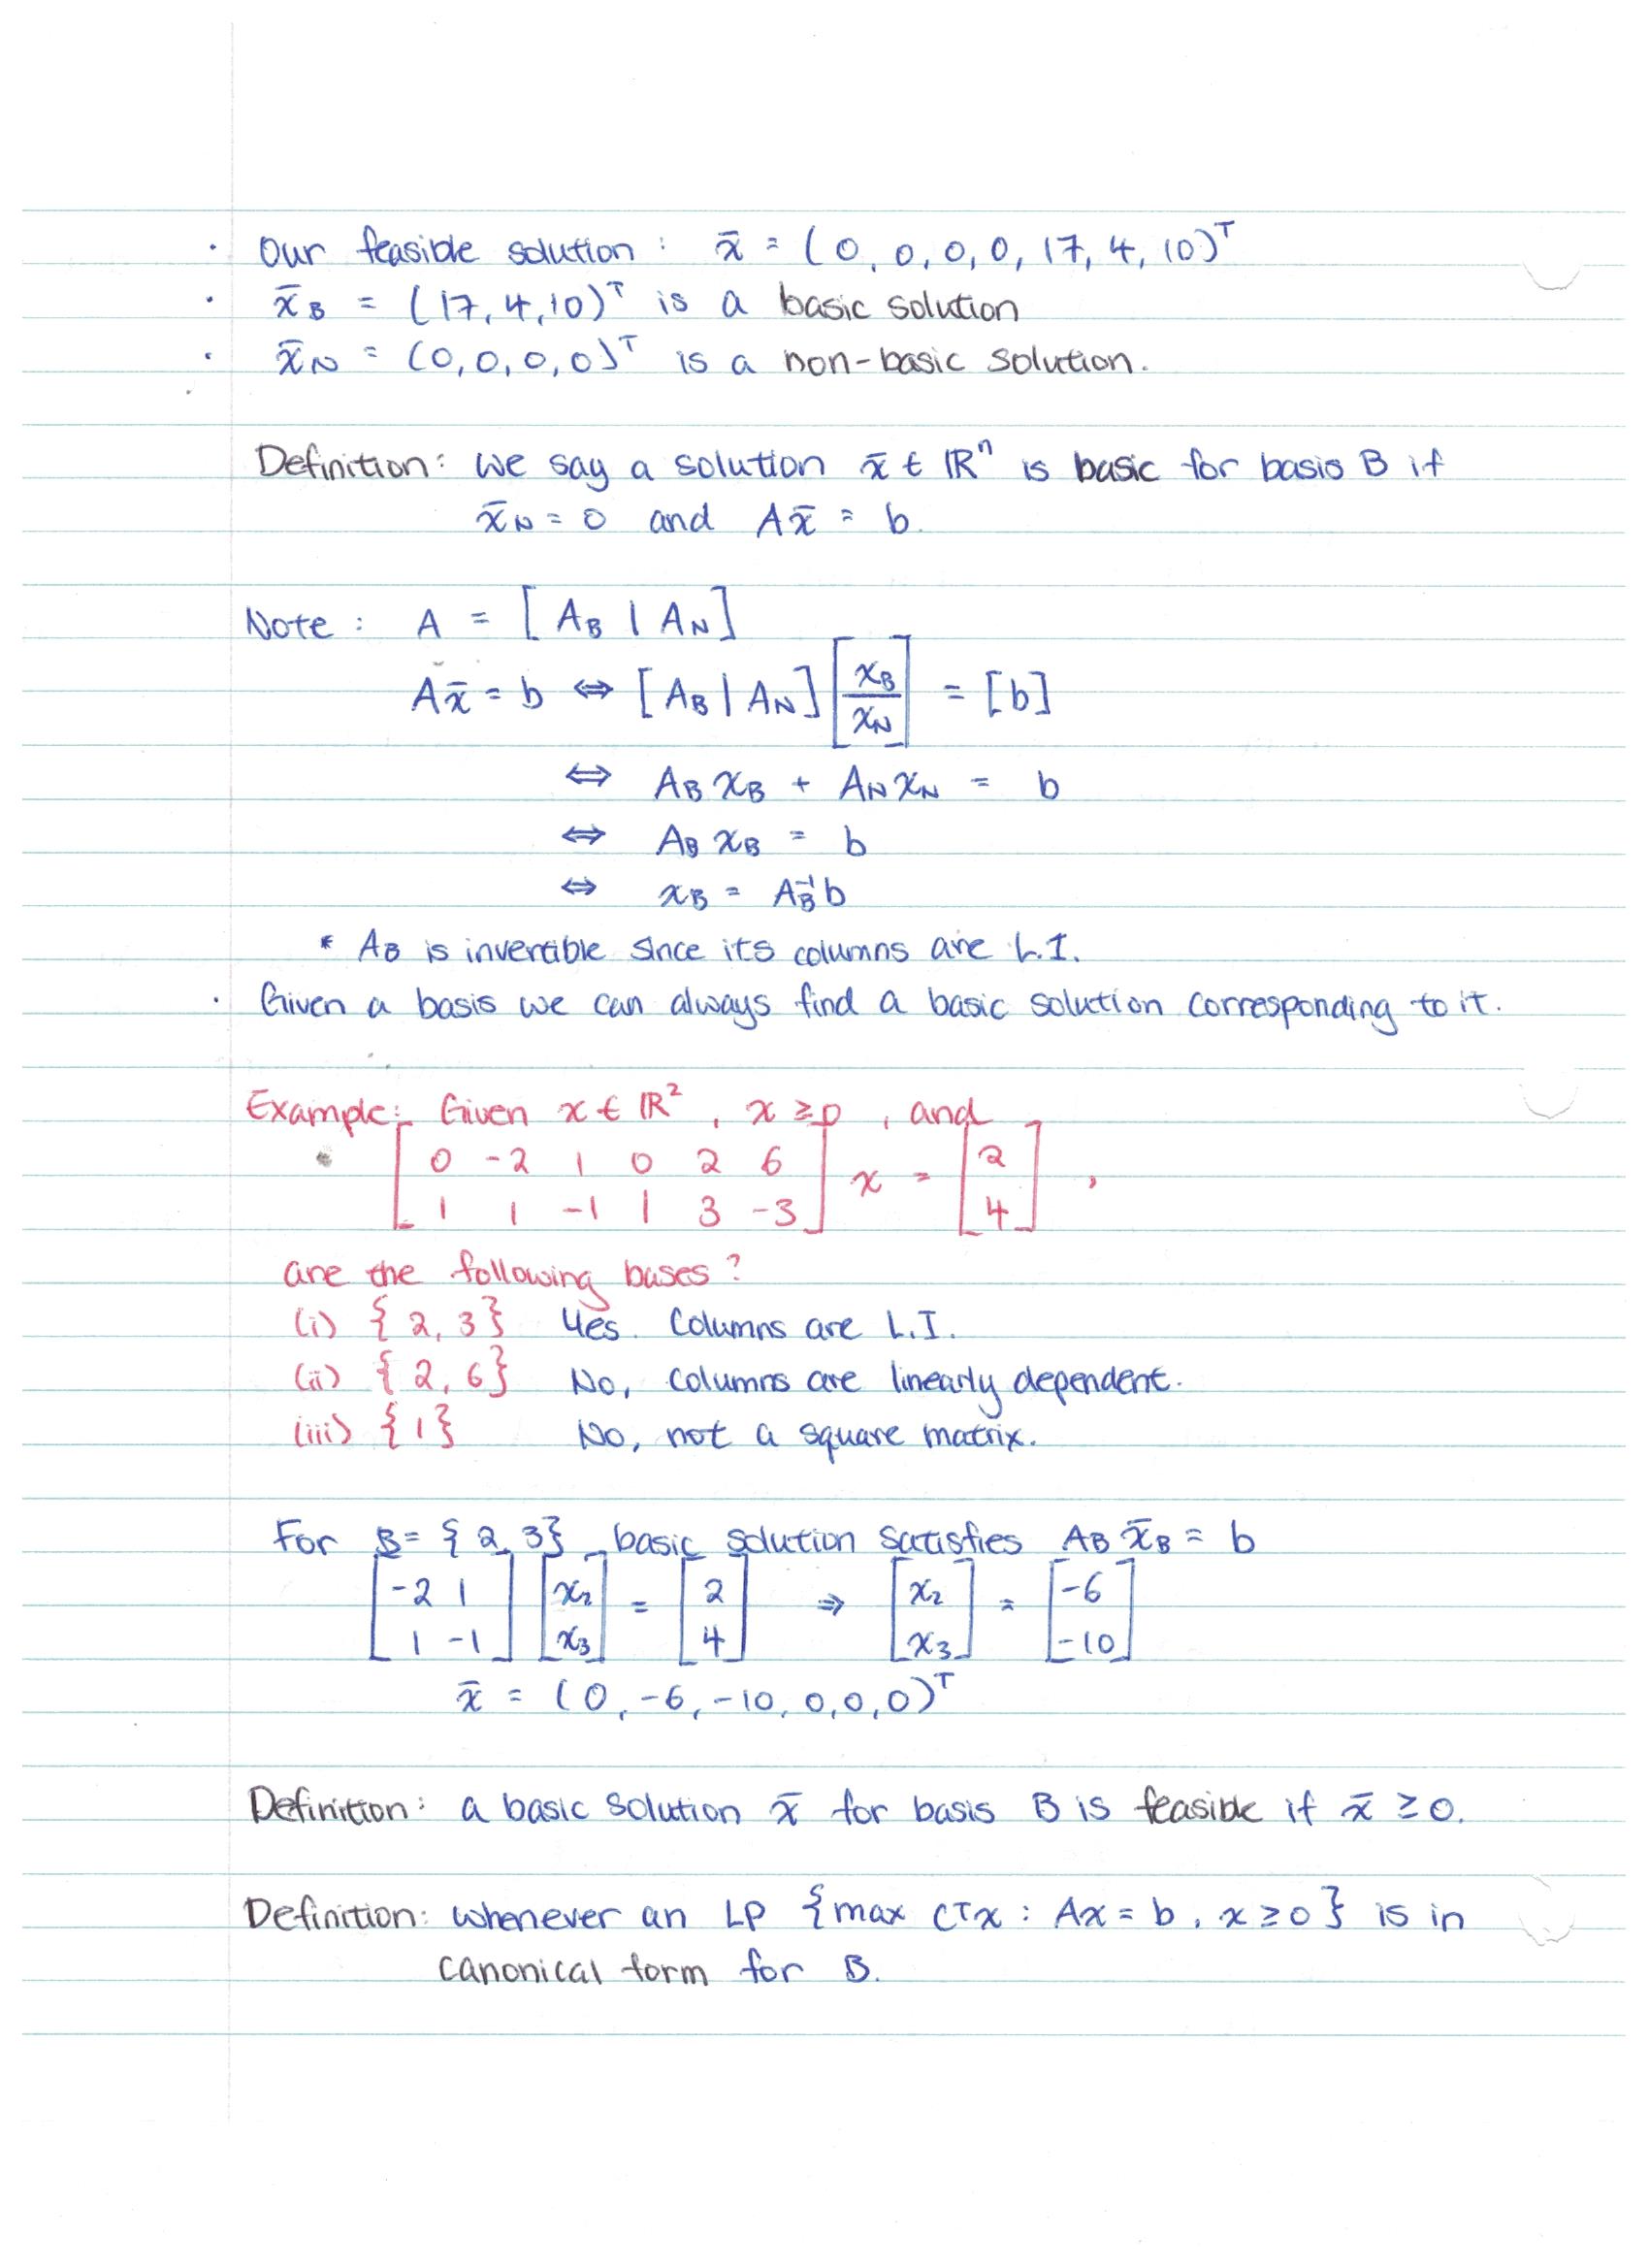 · Our feasible solution : x̄ = (0, 0, 0, 0, 17, 4, 10)ᵀ
· x̄_B = (17, 4, 10)ᵀ is a basic solution
· x̄_N = (0, 0, 0, 0)ᵀ is a non-basic solution.
Definition: We say a solution x̄ ∈ ℝⁿ is basic for basis B if
x̄_N = 0 and Ax̄ = b.
Note : A = [ A_B | A_N ]
Ax̄ = b ⇔ [ A_B | A_N ] [ x_B / x_N ] = [b]
⇔ A_B x_B + A_N x_N = b
⇔ A_B x_B = b
⇔ x_B = A_B⁻¹ b
* A_B is invertible since its columns are L.I.
· Given a basis we can always find a basic solution corresponding to it.
Example: Given x ∈ ℝ², x ≥ 0, and
[ 0 -2 1 0 2 6 ] x = [ 2 ]
[ 1 1 -1 1 3 -3 ] [ 4 ] ,
are the following bases?
(i) { 2, 3} Yes. Columns are L.I.
(ii) { 2, 6} No, columns are linearly dependent.
(iii) {1} No, not a square matrix.
For B= { 2, 3} basic solution satisfies A_B x̄_B = b
[ -2 1 ] [ x₂ ] = [ 2 ] ⇒ [ x₂ ] = [ -6 ]
[ 1 -1 ] [ x₃ ] [ 4 ] [ x₃ ] [ -10 ]
x̄ = (0, -6, -10, 0, 0, 0)ᵀ
Definition: a basic solution x̄ for basis B is feasible if x̄ ≥ 0.
Definition: whenever an LP {max cᵀx : Ax = b, x ≥ 0 } is in
canonical form for B.